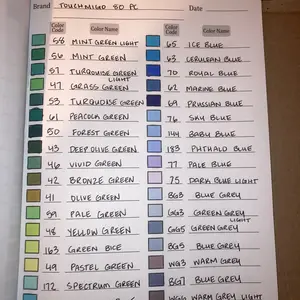 Brand TOUCHMIGO 80 PC Date
Color Code Color Name
58 MINT GREEN LIGHT
56 MINT GREEN
57 TURQUOISE GREEN LIGHT
47 GRASS GREEN
53 TURQUOISE GREEN
61 PEACOCK GREEN
50 FOREST GREEN
43 DEEP OLIVE GREEN
46 VIVID GREEN
42 BRONZE GREEN
41 OLIVE GREEN
59 PALE GREEN
48 YELLOW GREEN
163 GREEN BICE
49 PASTEL GREEN
172 SPECTRUM GREEN
Color Code Color Name
65 ICE BLUE
63 CERULEAN BLUE
70 ROYAL BLUE
62 MARINE BLUE
69 PRUSSIAN BLUE
76 SKY BLUE
144 BABY BLUE
183 PHTHALO BLUE
77 PALE BLUE
75 DARK BLUE LIGHT
BG3 BLUE GREY
GG3 GREEN GREY LIGHT
GG5 GREEN GREY
BG5 BLUE GREY
WG3 WARM GREY
BG7 BLUE GREY
WARM GREY LIGHT